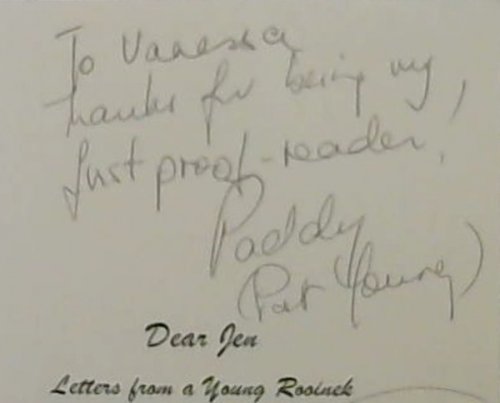 To Vanessa
thanks for being my
first proof-reader,
Paddy
(Pat Young)
Dear Jen
Letters from a Young Rooinek